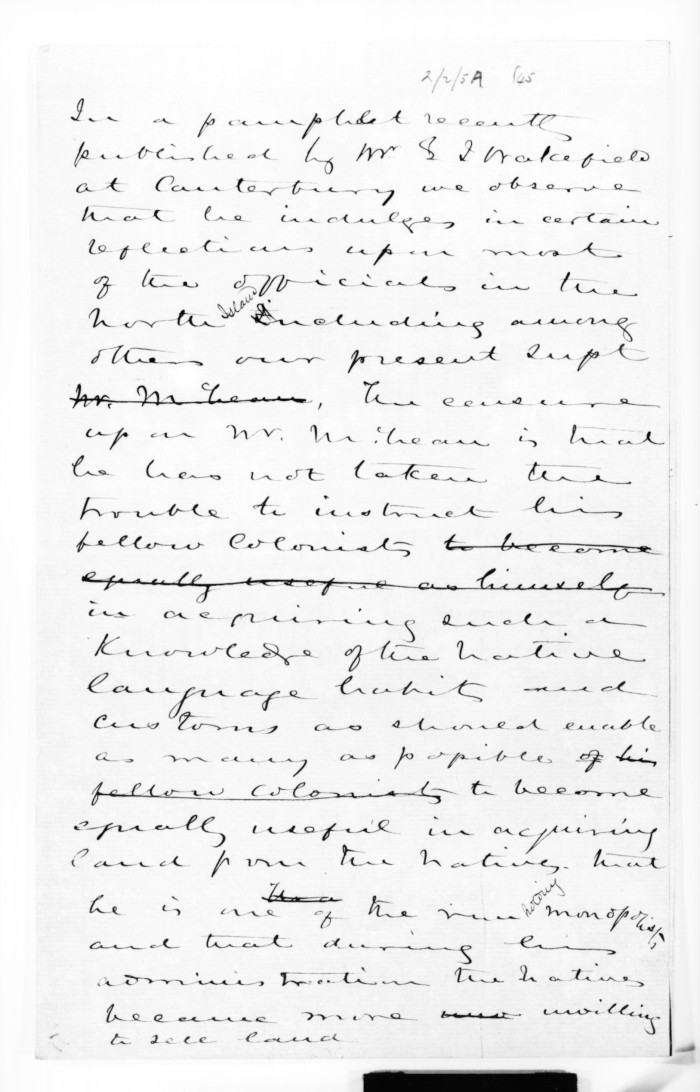 2/2/5A 65
In a pamphlet recently
published by Mr E J Wakefield
at Canterbury we observe
that he indulges in certain
reflections upon most
of the officials in the
North Island including among
others our present Supt
Mr. McLean, The censure
upon Mr. McLean is that
he has not taken the
trouble to instruct his
fellow Colonists to become
equally useful as himself
in acquiring such a
Knowledge of the Native
language habits and
customs as should enable
as many as possible of his
fellow colonists to become
equally useful in acquiring
land from the Natives. that
he is one of the run monopolists,
and that during his
administration the Natives
became more unwilling
to sell land